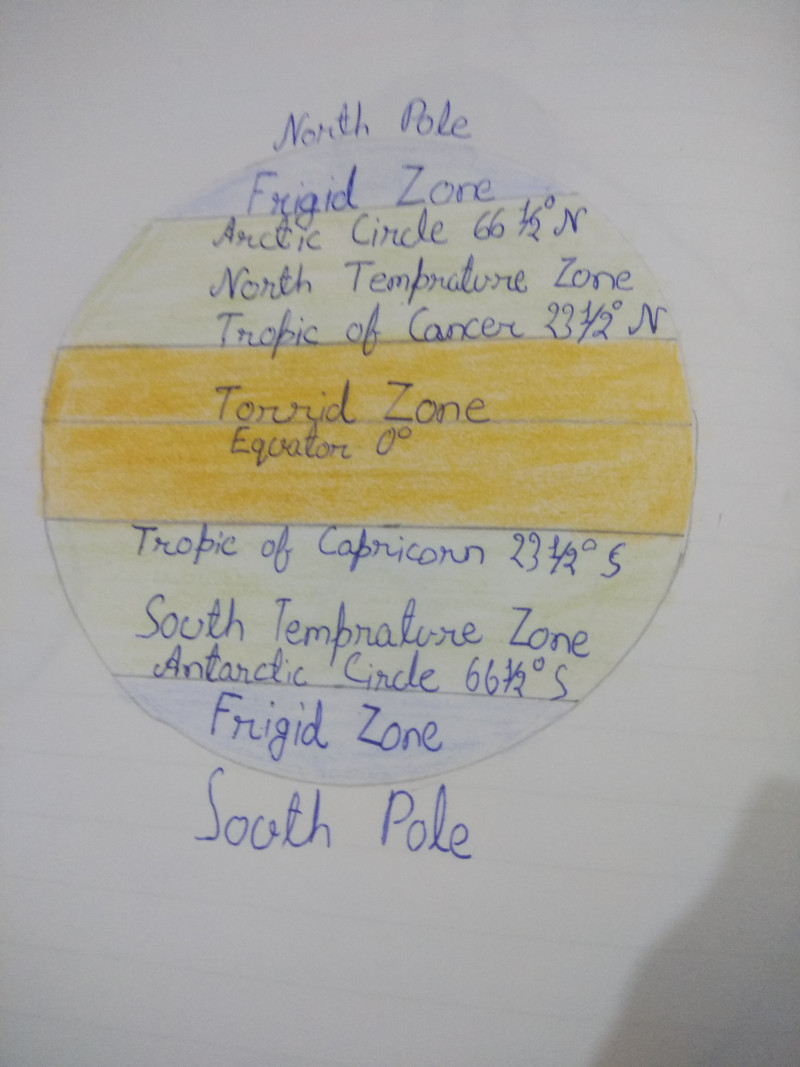 North Pole
Frigid Zone
Arctic Circle 66 1/2° N
North Temprature Zone
Tropic of Cancer 23 1/2° N
Torrid Zone
Equator 0°
Tropic of Capricorn 23 1/2° S
South Temprature Zone
Antarctic Circle 66 1/2° S
Frigid Zone
South Pole